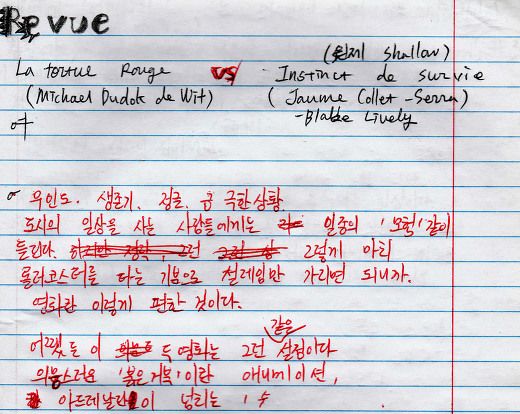 Revue
(원제 shallow)
La tortue Rouge vs Instinct de survie
(Michael Dudok de Wit) (Jaume Collet-Serra)
-Blake Lively
무인도. 생존기. 정글. 극한상황
도시의 일상을 사는 사람들에게는 일종의 '모험'같이
들린다. 그렇게 마치
롤러코스터를 타는 기분으로 설레임만 가리면 되니까.
영화란 이렇게 편한 것이다.
같은
어쨌든 이 두 영화는 그런 설정이다
'붉은 거북'이란 애니메이션,
아드레날린이 넘리는